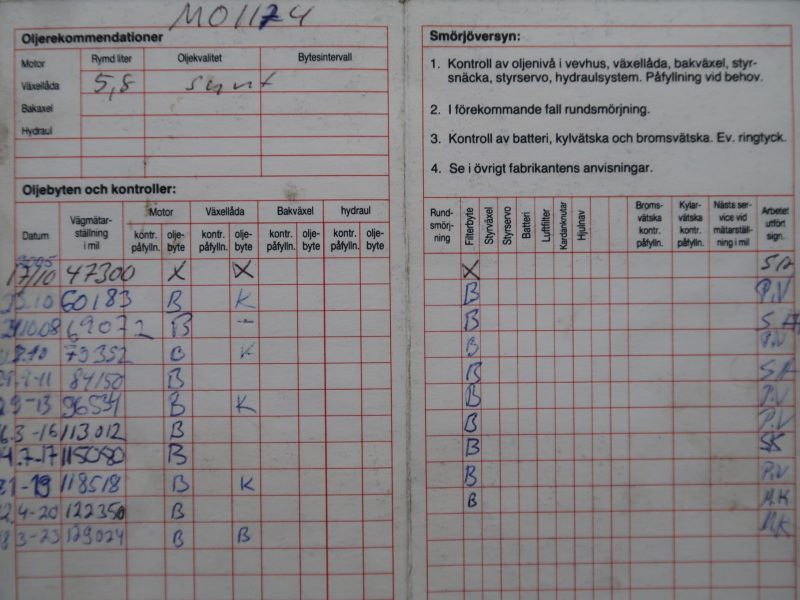 MO1174
Oljerekommendationer
Rymd liter Oljekvalitet Bytesintervall
Motor
Växellåda 5,8 synt
Bakaxel
Hydraul
Oljebyten och kontroller:
Datum Vägmätarställning i mil Motor Växellåda Bakväxel hydraul
kontr. påfylln. oljebyte kontr. påfylln. oljebyte kontr. påfylln. oljebyte kontr. påfylln. oljebyte
2005
17/10 47300 X X
23.10 60183 B K
69072 B -
79352 B K
84150 B
96534 B K
6.3-16 113012 B
4.7-17 115080 B
21-19 118518 B K
2.4-20 122350 B
8 3-23 129024 B B
Smörjöversyn:
1. Kontroll av oljenivå i vevhus, växellåda, bakväxel, styr-
snäcka, styrservo, hydraulsystem. Påfyllning vid behov.
2. I förekommande fall rundsmörjning.
3. Kontroll av batteri, kylvätska och bromsvätska. Ev. ringtyck.
4. Se i övrigt fabrikantens anvisningar.
Rundsmörjning Filterbyte Styrväxel Styrservo Batteri Luftfilter Kardanknutar Hjulnav Bromsvätska kontr. påfylln. Kylarvätska kontr. påfylln. Nästa service vid mätarställning i mil Arbetet utfört sign.
X
B P.V
B
B P.V
B
B P.V
B P.V
B SK
B P.V
B M.K
M.K